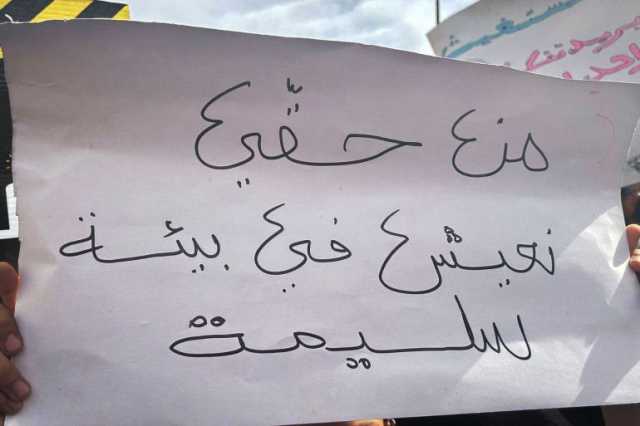 من حقّي
نعيش في بيئة
سليمة